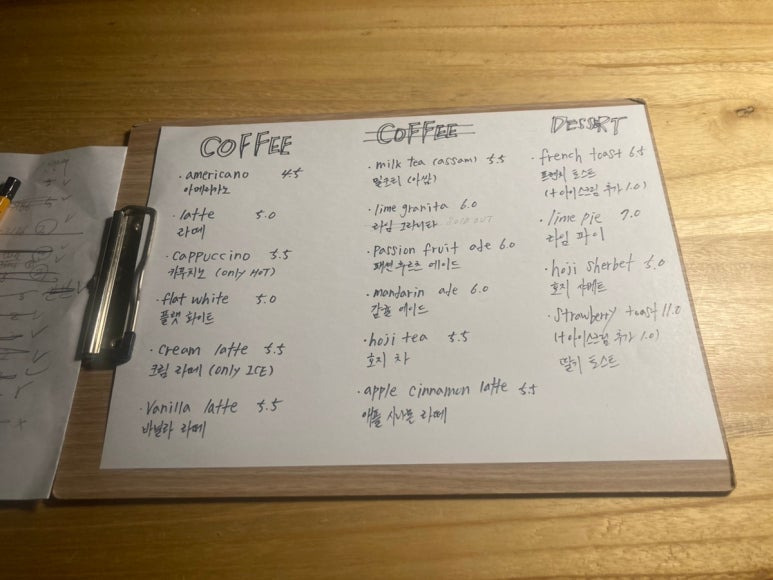 COFFEE
· americano 4.5
아메리카노
· latte 5.0
라떼
· cappuccino 5.5
카푸치노 (only HOT)
· flat white 5.0
플랫 화이트
· cream latte 5.5
크림 라떼 (only ICE)
· Vanilla latte 5.5
바닐라 라떼
COFFEE
· milk tea (assam) 5.5
밀크티 (아쌈)
· lime granita 6.0
라임 그라니타 SOLD OUT
· passion fruit ade 6.0
패션후르츠 에이드
· mandarin ade 6.0
감귤 에이드
· hoji tea 5.5
호지 차
· apple cinnamon latte 5.5
애플 시나몬 라떼
DESSERT
· french toast 6.5
프렌치 토스트
(+아이스크림 추가 1.0)
· lime pie 7.0
라임 파이
· hoji sherbet 5.0
호지 샤베트
· Strawberry toast 11.0
(+아이스크림 추가 1.0)
딸기 토스트